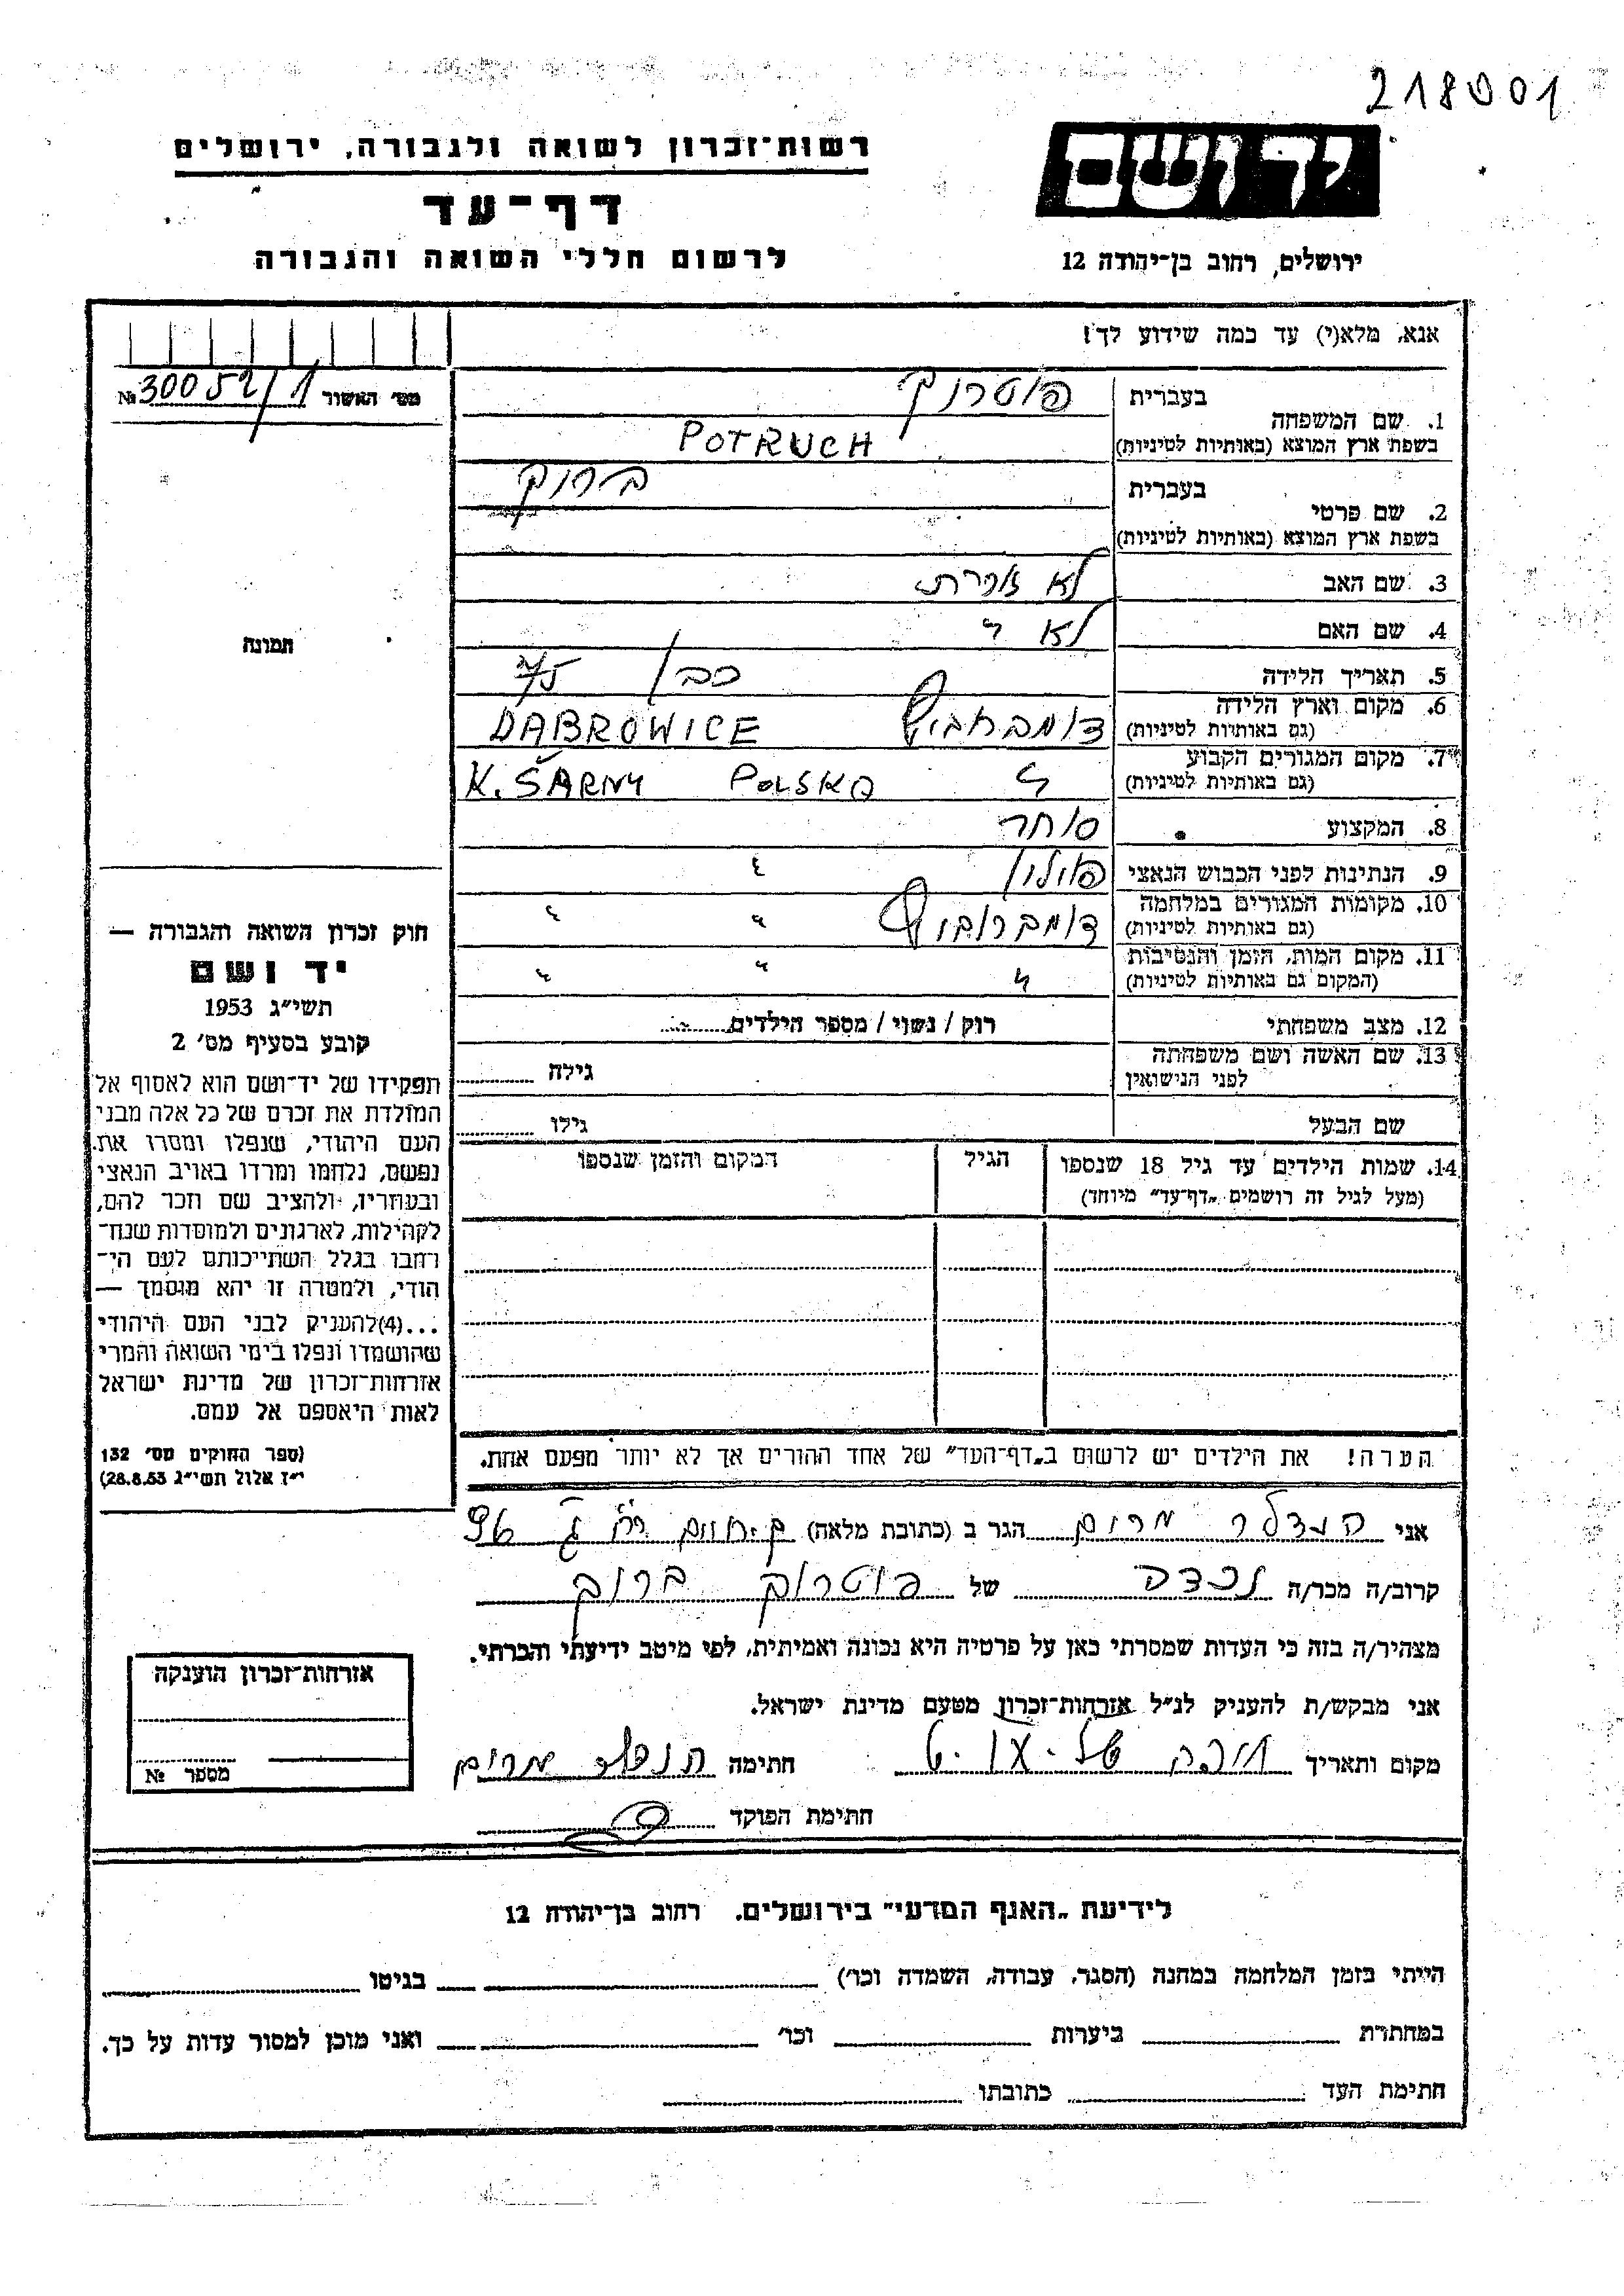 218001
רשות־זכרון לשואה ולגבורה, ירושלים
יד ושם
דף-עד
לרשום חללי השואה והגבורה
ירושלים, רחוב בן־יהודה 12
אנא, מלא(י) עד כמה שידוע לך!
מס׳ האשור № 30052/1
1. שם המשפחה
בעברית פוטרוך
בשפת ארץ המוצא (באותיות לטיניות) POTRUCH
2. שם פרטי
בעברית ברוך
בשפת ארץ המוצא (באותיות לטיניות)
3. שם האב לא
4. שם האם לא
תמונה
5. תאריך הלידה
6. מקום וארץ הלידה
(גם באותיות לטיניות) DABROWICE
7. מקום המגורים הקבוע
(גם באותיות לטיניות) " POLSKA K. SARNY
8. המקצוע סוחר
9. הנתינות לפני הכבוש הנאצי פולין "
10. מקומות המגורים במלחמה
(גם באותיות לטיניות) " "
11. מקום המות, הזמן והנסיבות
(המקום גם באותיות לטיניות) " " "
12. מצב משפחתי רוק / נשוי / מספר הילדים
13. שם האשה ושם משפחתה
לפני הנישואין גילה
שם הבעל גילו
14. שמות הילדים עד גיל 18 שנספו הגיל המקום והזמן שנספו
(מעל לגיל זה רושמים „דף־עד״ מיוחד)
הערה! את הילדים יש לרשום ב„דף־העד״ של אחד ההורים אך לא יותר מפעם אחת.
חוק זכרון השואה והגבורה —
יד ושם
תשי״ג 1953
קובע בסעיף מס׳ 2
תפקידו של יד־ושם הוא לאסוף אל
המולדת את זכרם של כל אלה מבני
העם היהודי, שנפלו ומסרו את
נפשם, נלחמו ומרדו באויב הנאצי
ובעוזריו, ולהציב שם וזכר להם,
לקהילות, לארגונים ולמוסדות שנח־
רבו בגלל השתייכותם לעם הי־
הודי, ולמטרה זו יהא מוסמך —
...(4)להעניק לבני העם היהודי
שהושמדו ונפלו בימי השואה והמרי
אזרחות־זכרון של מדינת ישראל
לאות היאספם אל עמם.
(ספר החוקים מס׳ 132
י״ז אלול תשי״ג 28.8.53)
אני הנדלר מרים הגר ב (כתובת מלאה)
קרוב/ה מכר/ה נכדה של פוטרוך ברוך
מצהיר/ה בזה כי העדות שמסרתי כאן על פרטיה היא נכונה ואמיתית, לפי מיטב ידיעתי והכרתי.
אני מבקש/ת להעניק לנ״ל אזרחות־זכרון מטעם מדינת ישראל.
מקום ותאריך חתימה
חתימת הפוקד
אזרחות־זכרון הוענקה
מספר №
לידיעת „האגף המדעי״ בירושלים. רחוב בן־יהודה 12
הייתי בזמן המלחמה במחנה (הסגר, עבודה, השמדה וכו׳) בגיטו
במחתרת ביערות וכו׳ ואני מוכן למסור עדות על כך.
חתימת העד כתובתו